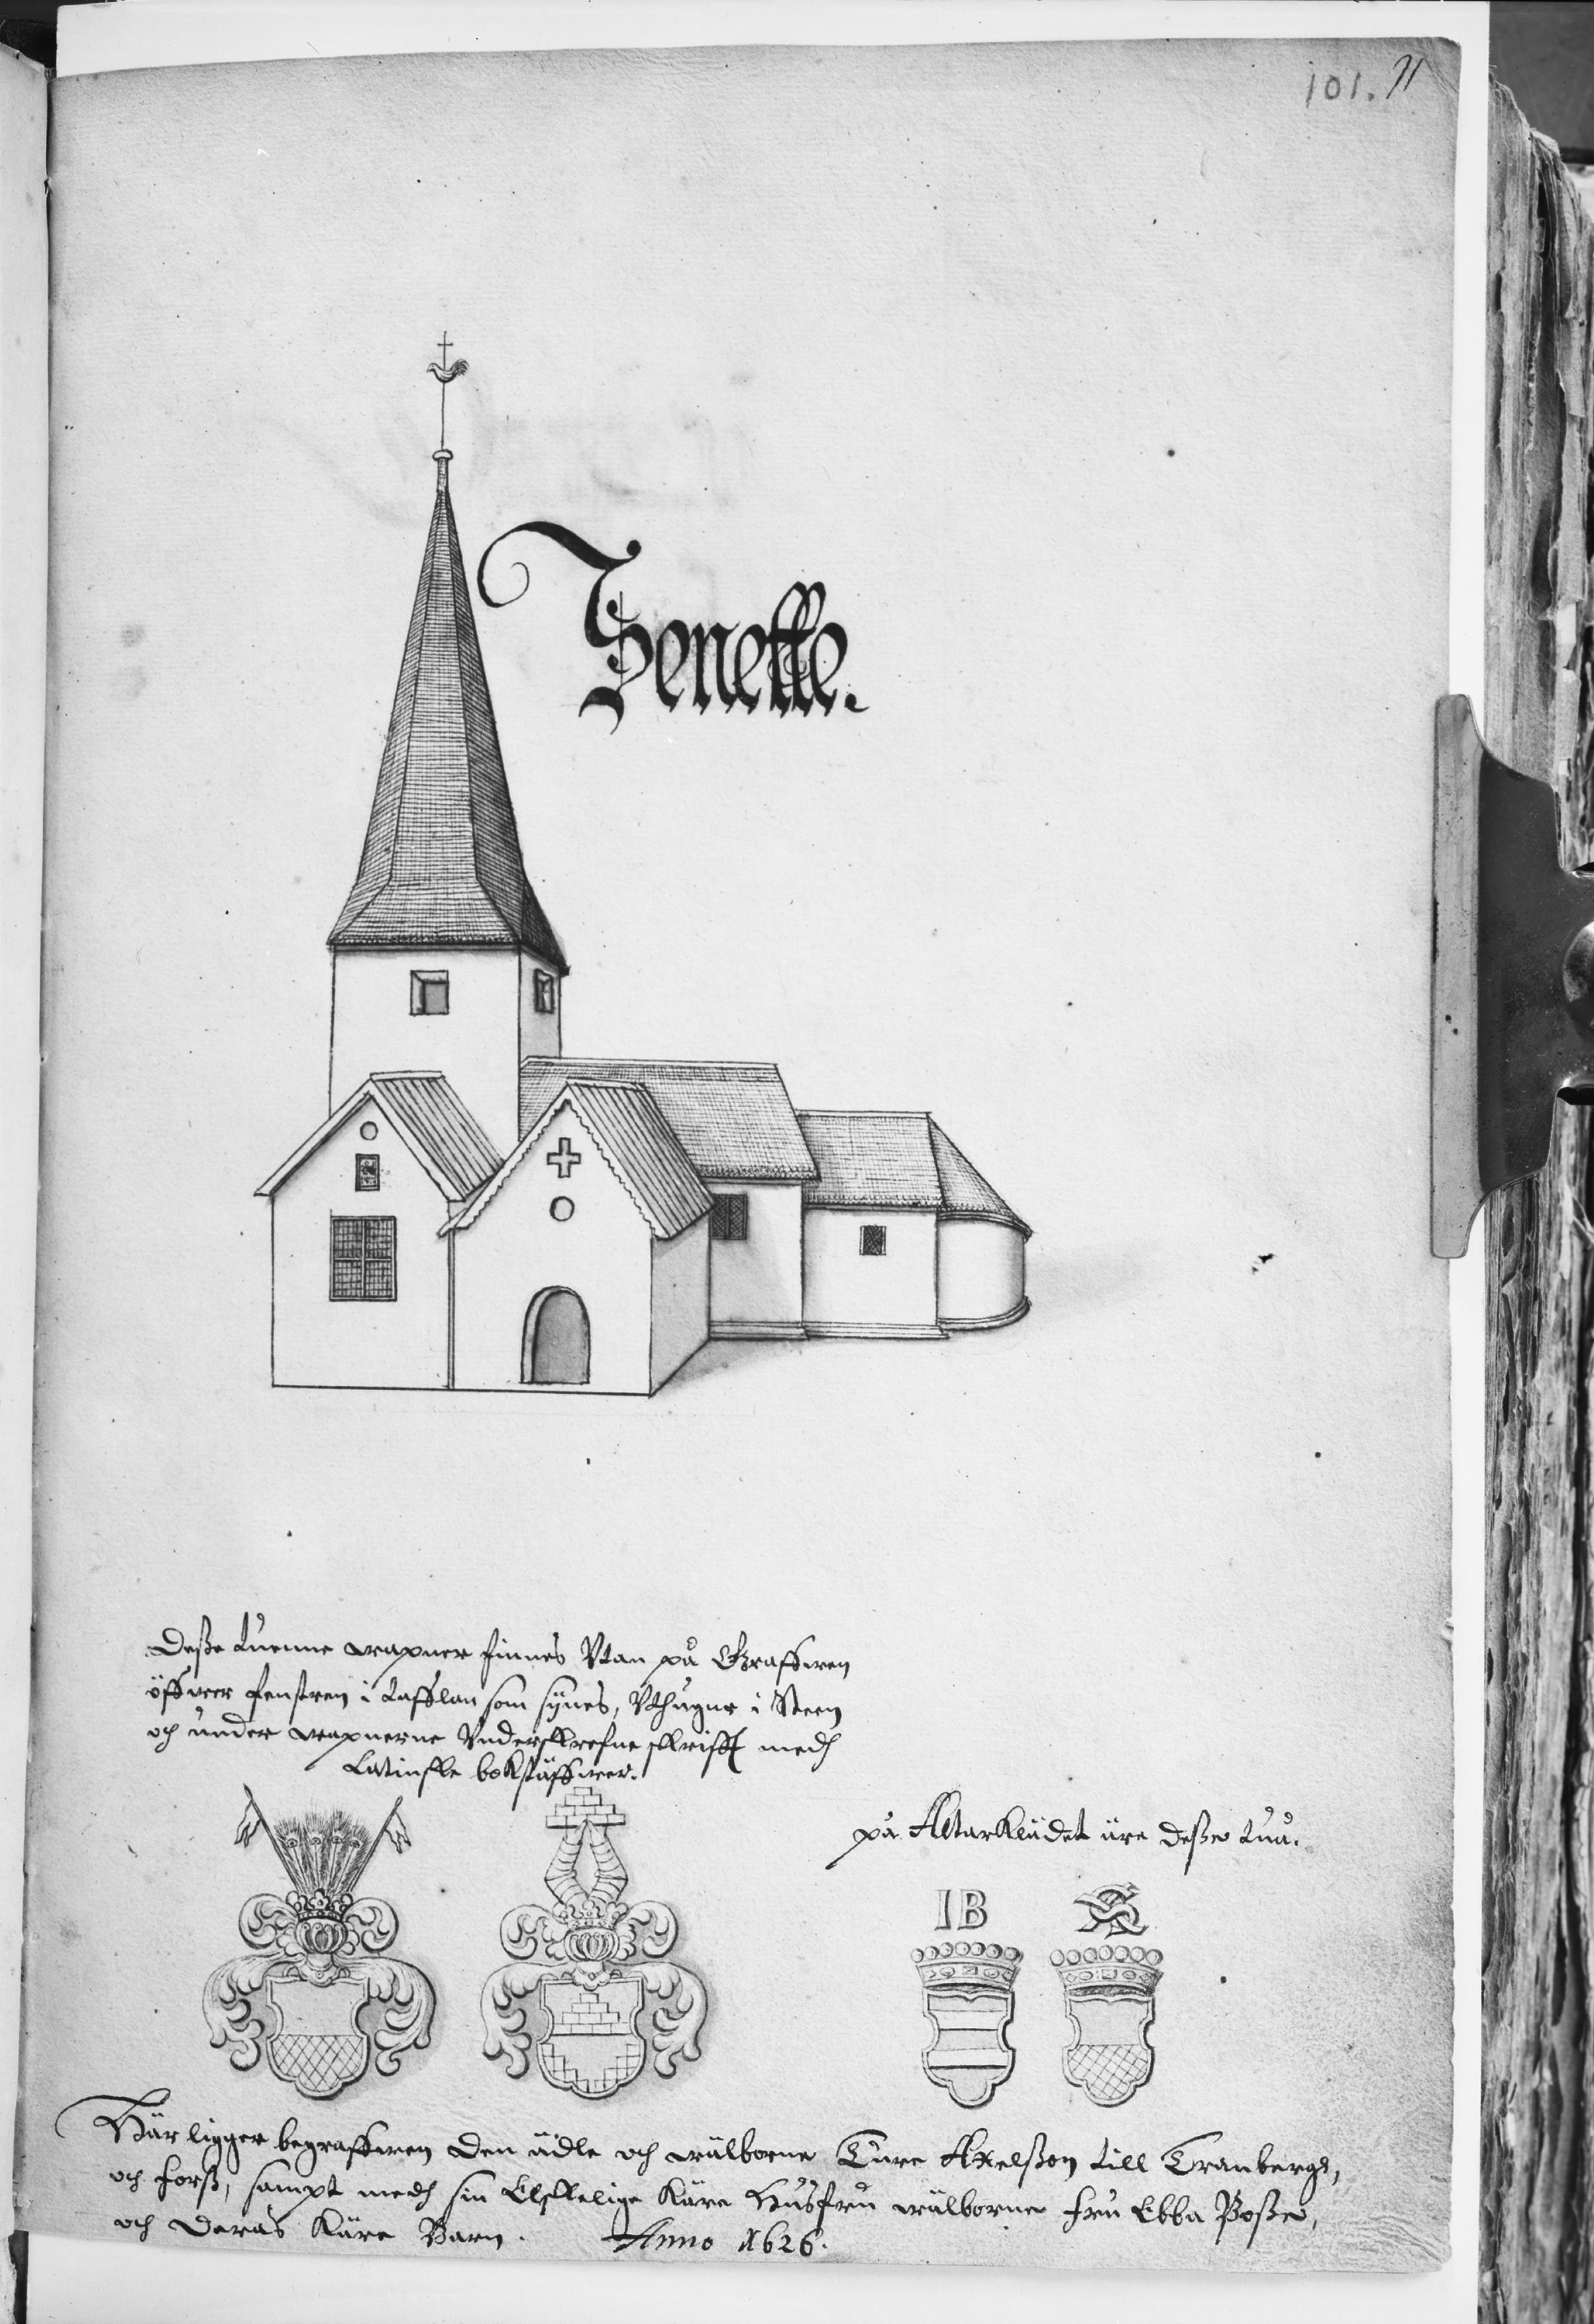 101. 71
Seneske.
Desße tuenne wapner finnes Vtan på Graffwen
öffwer fenstren i tafflan som sÿnes, Vthugne i Steen
och under wapnerne Vnderskrefne skrifft medh
Latinske bokstäffwer.
på Altarklädet äre desße tuå.
IB
Här ligger begraffwen den ädle och wälborne Ture Axelsßon till Tranbergh,
och Forß, sampt medh sin Elskelige Käre Husfru wälborne fru Ebba Posße,
och deras Käre Barn. Anno 1626.